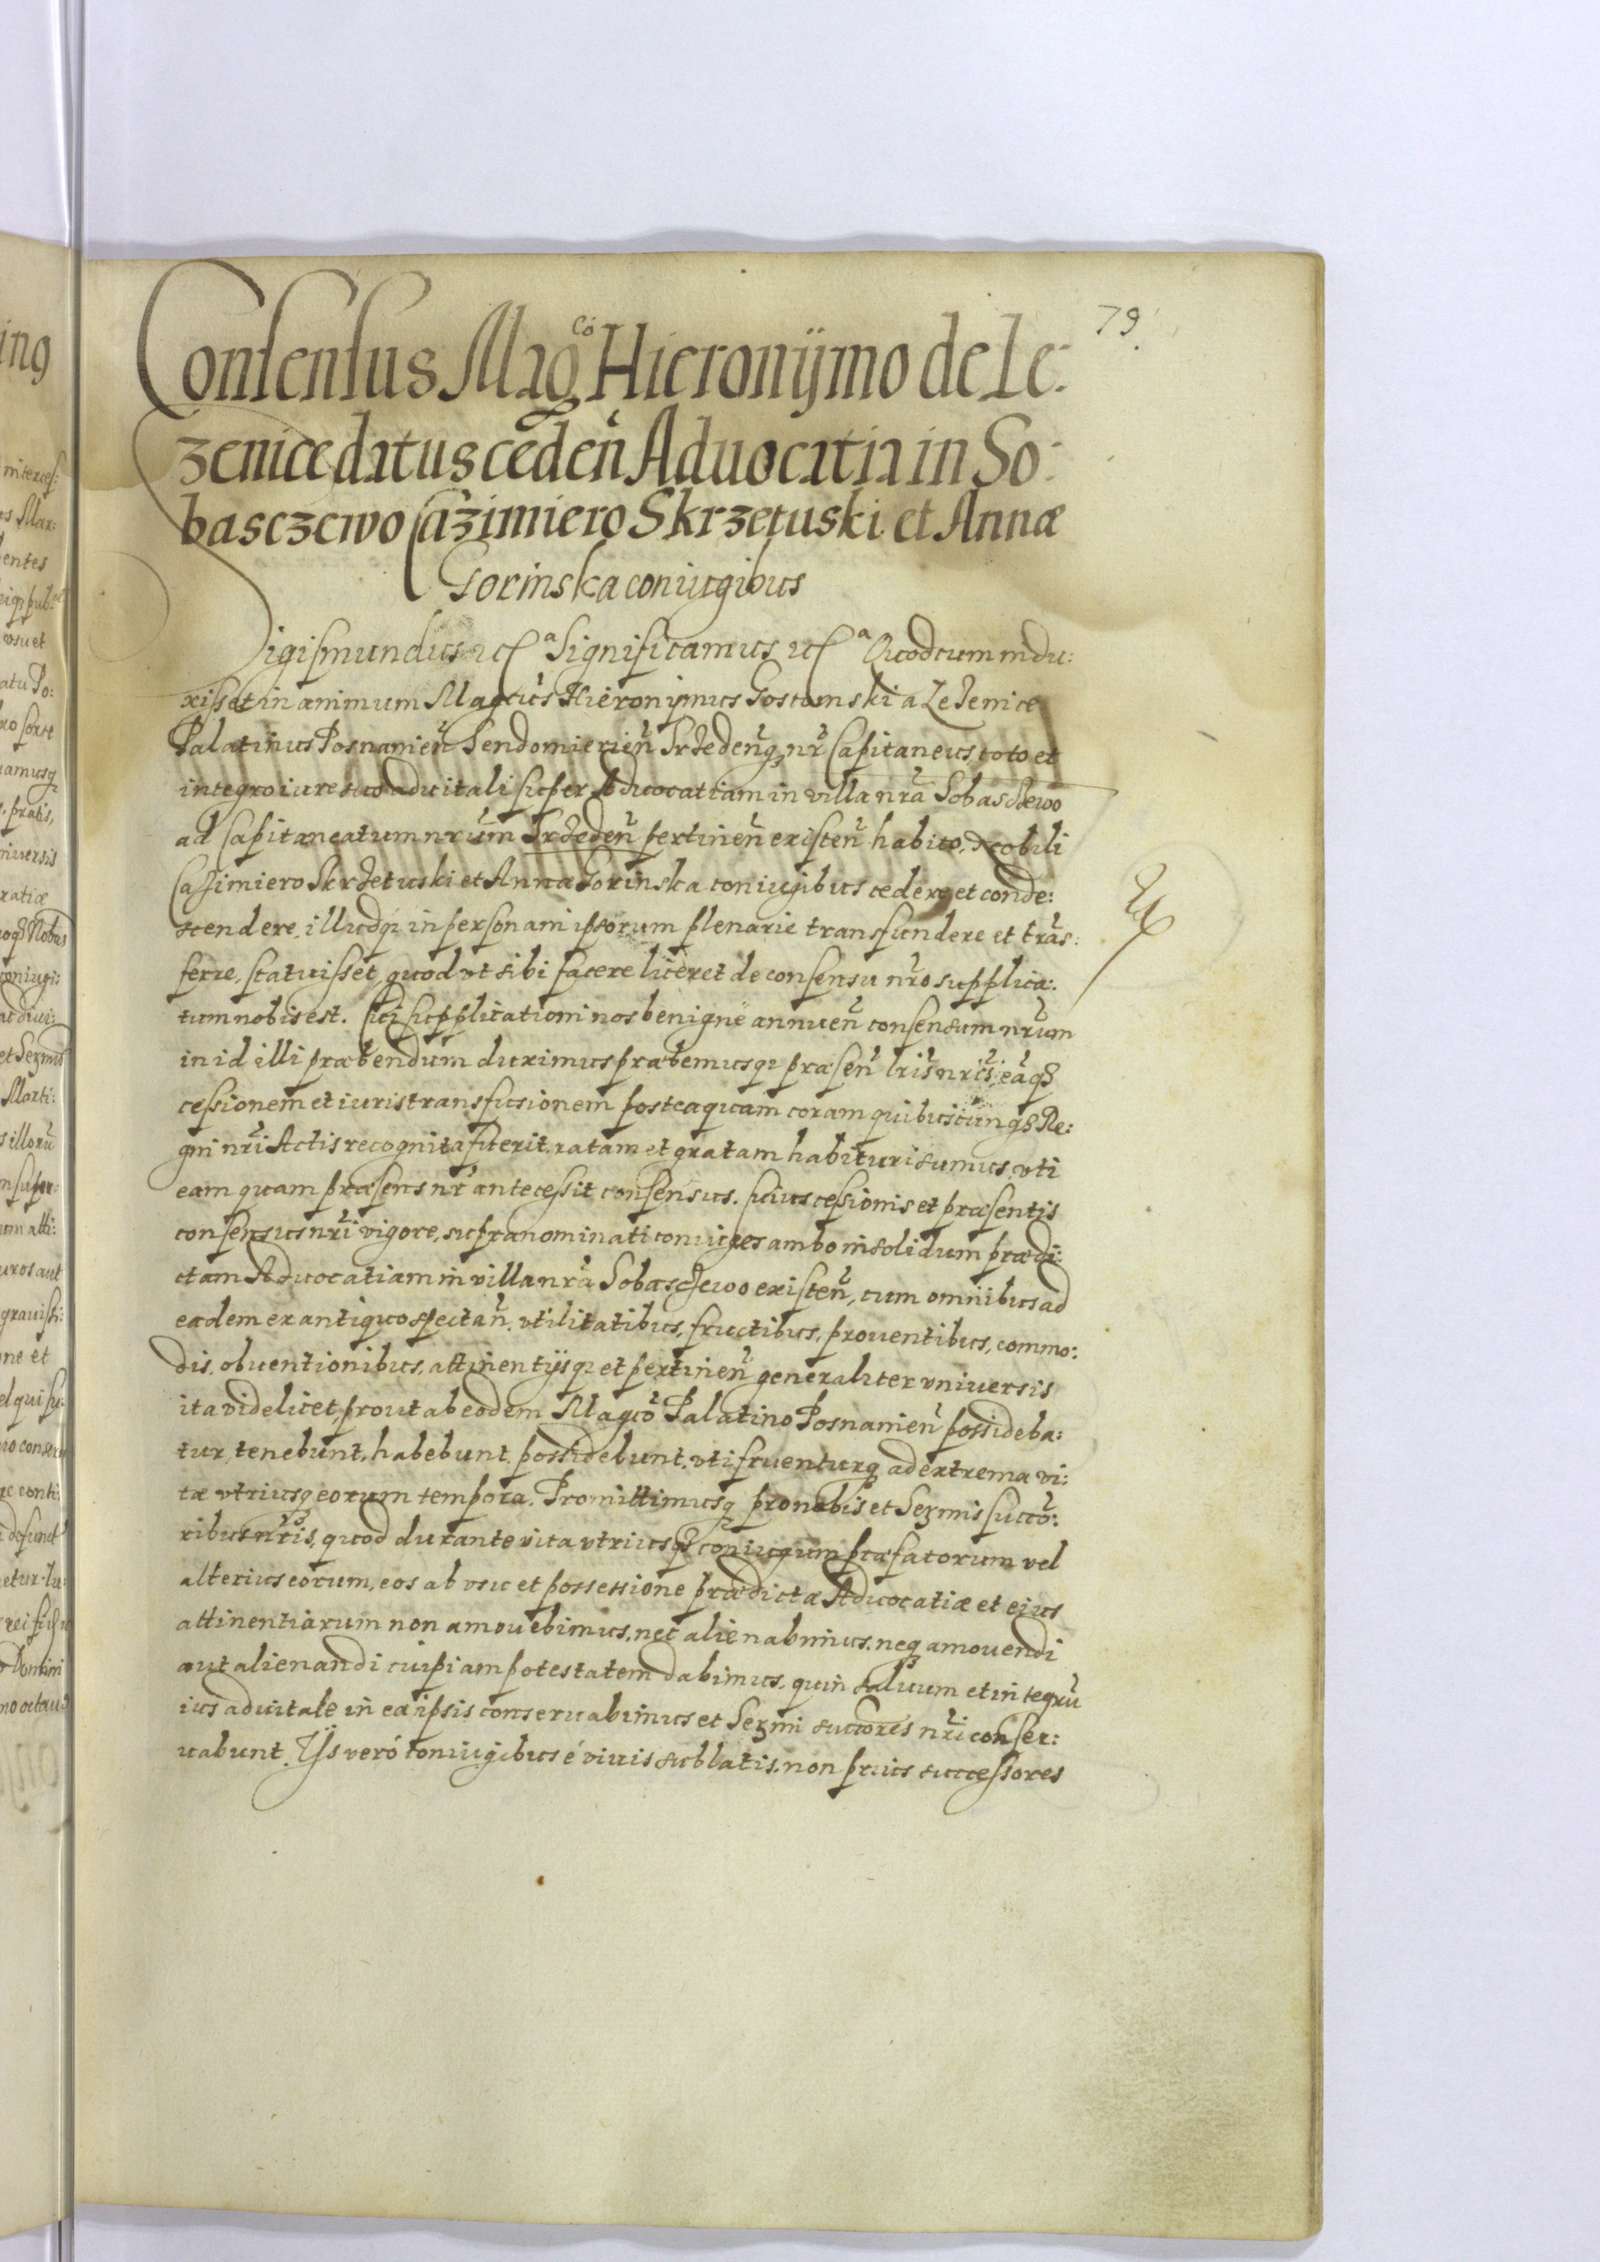 79.
Consensus Mag^co Hieronÿmo de Le:
zenice datus ceden̄ Aduocatia in So:
basczewo Cazimiero Skrzetuski et Annæ
Gorinska coniugibus
Sigismundus etc^a Significamus etc^a Quod cum indu:
xisset in animum Mag̃cus Hieronÿmus Gostomski a Lezenice
Palatinus Posnanien̄ Sendomierien̄ Srzeden̄q; nr̃ Capitaneus toto et
integro iure suo aduitali super Aduocatiam in villa nr̃a Sobasczewo
ad Capitaneatum nr̃um Srzeden̄ pertinen̄ existen̄ habito, Nobili
Cazimiero Skrzetuski et Annæ Gorinska coniugibus cedere et conde:
scendere, illudq; in personam ipsorum plenarie transfundere et trãs:
ferre, statuisset, quod vt sibi facere liceret de consensu nr̃o supplica:
tum nobis est. Cui supplicationi nos benigne annuen̄ consensum nr̃um
in id illi præbendum duximus præbemusq; præsen̄ lr̃is nr̃is, eãq;
cessionem et iuris transfusionem posteaquam coram quibuscunq; Re:
gni nr̃i Actis recognita fuerit, ratam et gratam habituri sumus, vti
eam quam præsens nr̃ antecessit consensus. Cuius cessionis et præsentis
consensus nr̃i vigore, supranominati coniuges ambo insolidum prædi:
ctam Aduocatiam in villa nr̃a Sobasczewo existen̄, cum omnibus ad
eadem ex antiquo spectan̄, vtilitatibus, fructibus, prouentibus, commo:
dis, obuentionibus, attinentÿsq; et pertinen̄ generaliter vniuersis
ita videlicet, prout ab eodem Mag̃co Palatino Posnanien̄ possideba:
tur, tenebunt, habebunt, possidebunt, vti fruenturq; ad extrema vi:
tæ vtriusq; eorum tempora. Promittimusq; pro nobis et Sezmis succõ:
ribus nr̃is, quod durante vita vtriusq; coniugum præfatorum vel
alterius eorum, eos ab vsu et possessione prædictæ Aduocatiæ et eius
attinentiarum non amouebimus, nec alienabimus, neq; amouendi
aut alienandi cuipiam potestatem dabimus, quin saluum et integrũ
ius aduitale in ea ipsis conseruabimus et Sezmi succores nr̃i conser:
uabunt. Ÿs verò coniugibus è viuis sublatis, non prius successores